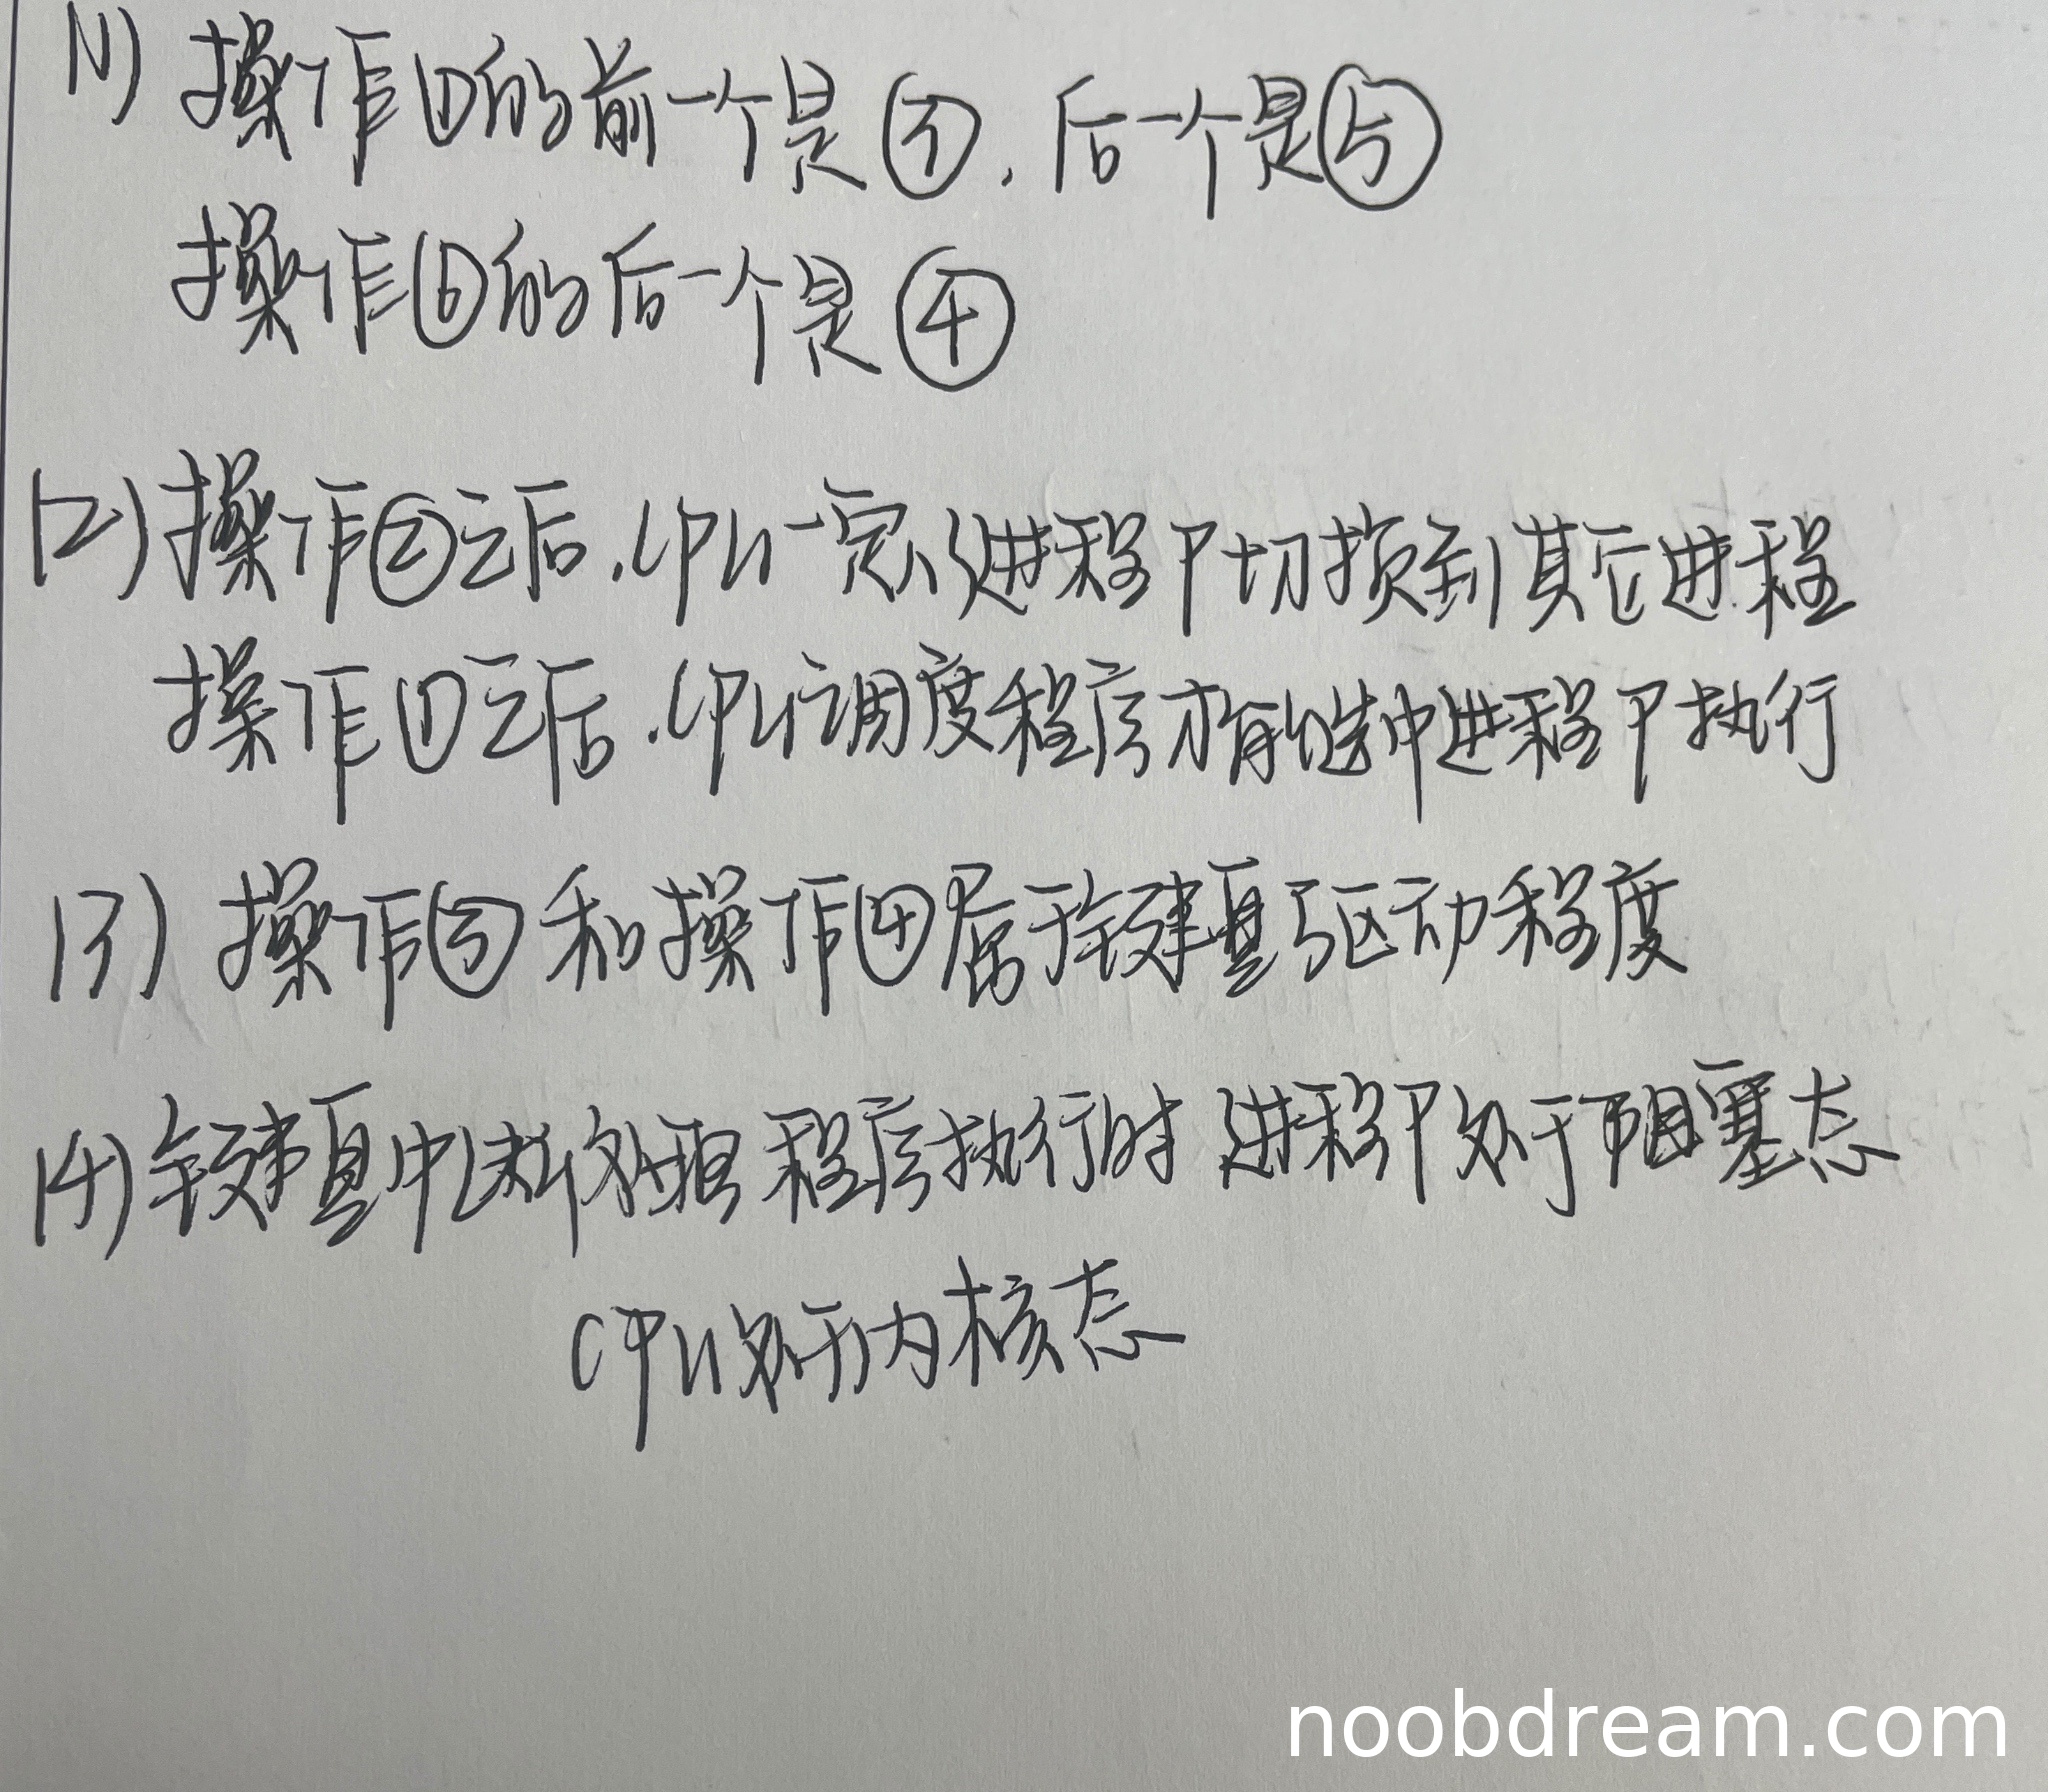 (1) 操作①的前一个是③. 后一个是⑤
操作⑥的后一个是④
(2) 操作②之后.CPU一定从进程P切换到其它进程
操作①之后.CPU调度程序才有能选中进程P执行
(3) 操作③和操作④属于键盘驱动程度
(4) 键盘中断处理程序执行时 进程P处于阻塞态
CPU处于内核态
noobdream.com